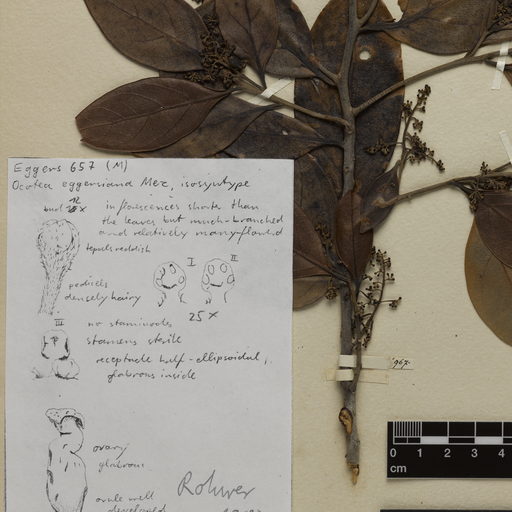 Eggers 657 (M)
Ocotea eggersiana Mez, isosyntype
bud 12 x
inflorescences shorter than
the leaves but much-branched
and relatively many-flowered
tepals reddish
I II
pedicels
densely hairy
25 x
III
no staminodes
stamens sterile
receptacle half-ellipsoidal,
glabrous inside
ovary
glabrous
ovule well
developed
Rohwer
0 1 2 3 4
cm